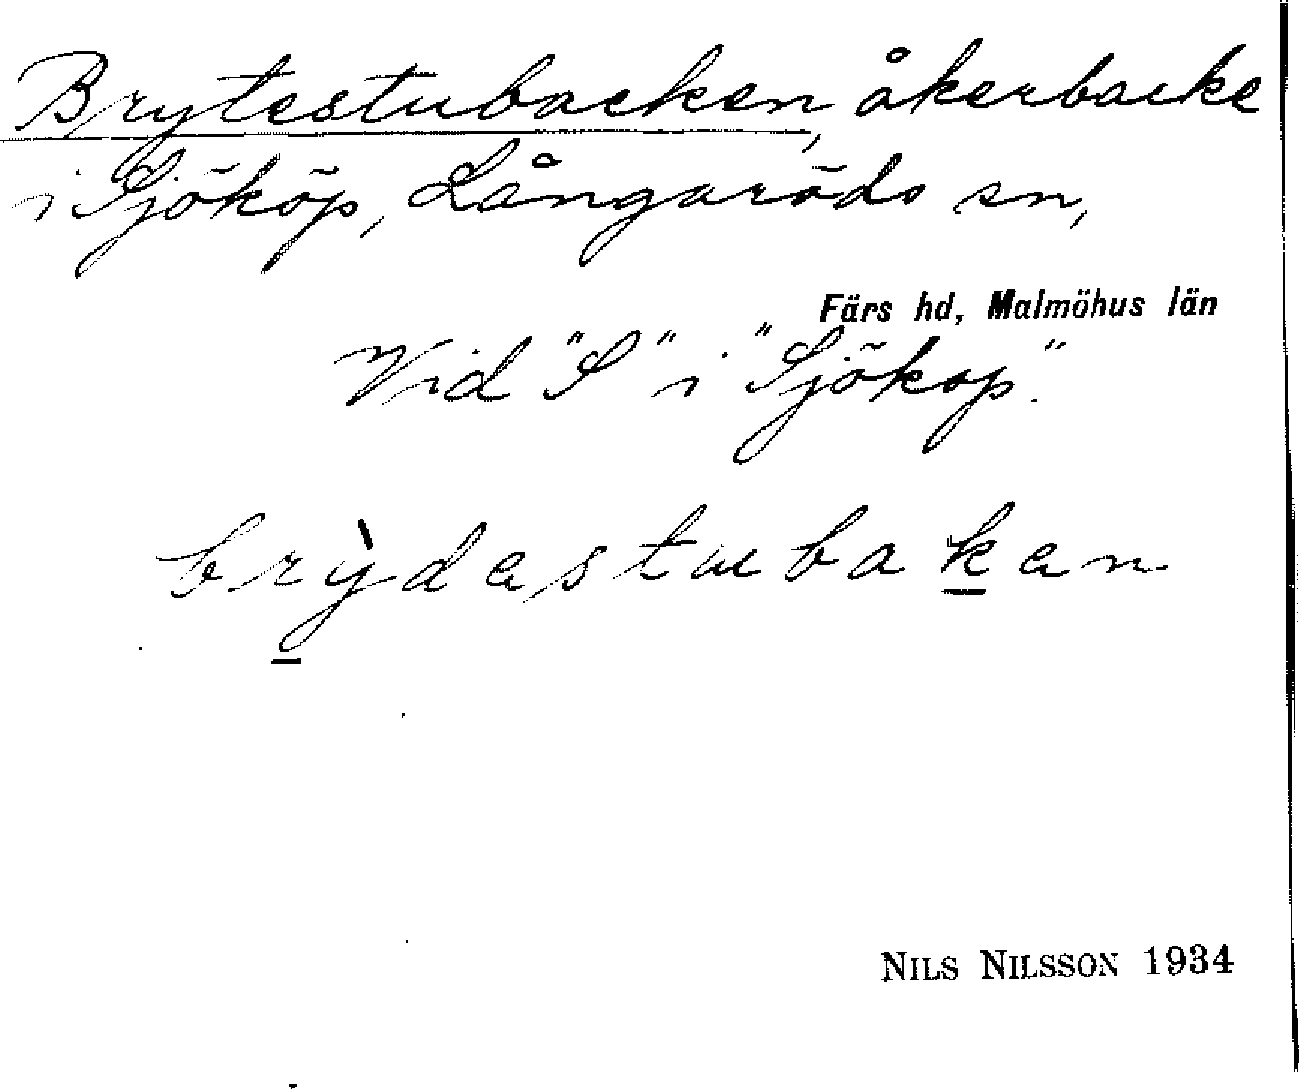 Brytestubacken, åkerbacke
i Sjököp, Långaröds sn,
Färs hd, Malmöhus län
Vid "S" i "Sjököp".
brỳdastubakan
NILS NILSSON 1934